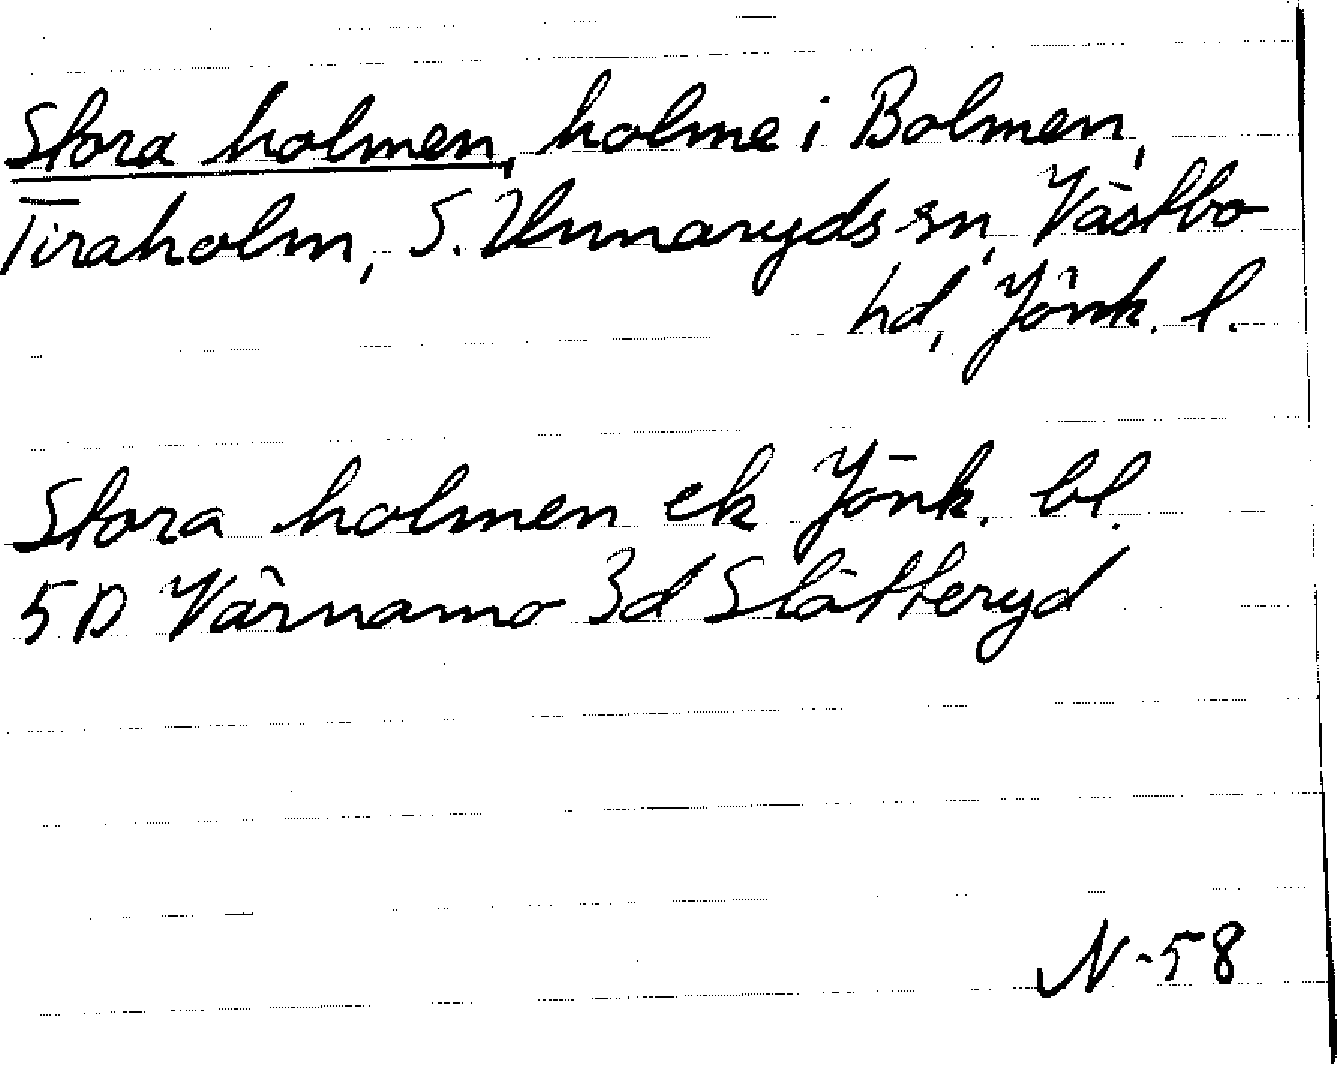 Stora holmen, holme i Bolmen,
Tiraholm, S. Unnaryds sn, Västbo
hd, Jönk. l.
Stora holmen ek Jönk. bl.
5D Värnamo 3d Slätteryd
N-58